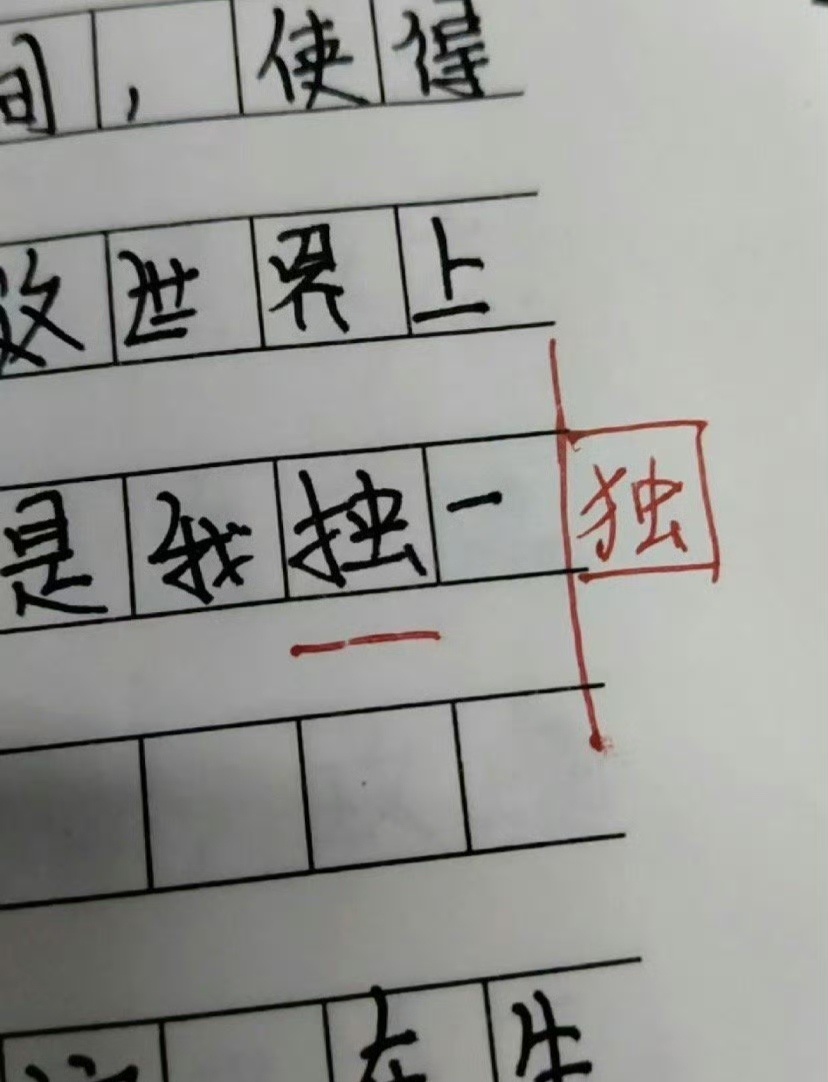 间，使得
世界上
是我独一 独
在生